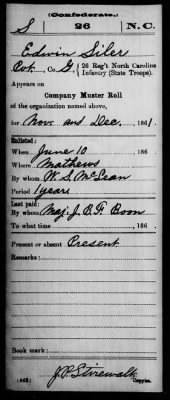 (Confederate.)
S 26 N.C.
Edwin Siler
Co. G, 26 Reg't North Carolina
Infantry (State Troops).
Appears on
Company Muster Roll
of the organization named above,
for Nov. and Dec., 1861.
Enlisted:
When June 10, 186
Where Mathews
By whom W. S. McLean
Period 1 year
Last paid:
By whom Maj. J. B. F. Boon
To what time, 186
Present or absent Present
Remarks:
Book mark:
J. P. Stirewalt
(642) Copyist.